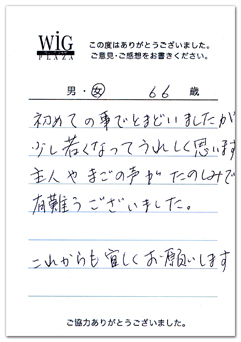 WiG
PLAZA
この度はありがとうございました。
ご意見・ご感想をお書きください。
男・女 66 歳
初めての事でとまどいましたが
少し若くなってうれしく思います
主人やまごの声がたのしみで
有難うございました。
これからも宜しくお願いします
ご協力ありがとうございました。